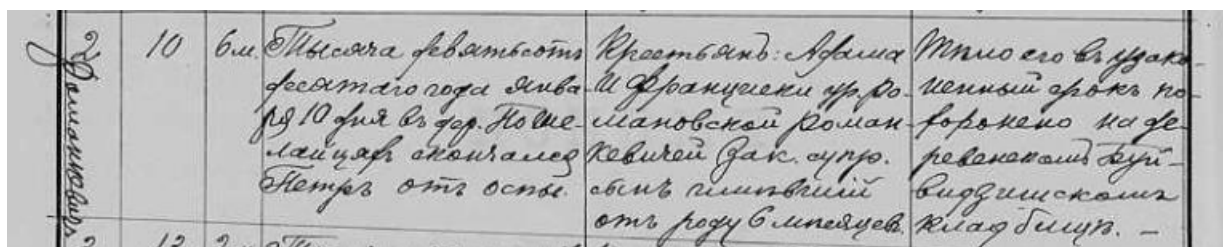 2
Романкевичъ
10
6 м.
Тысяча девятьсотъ
десятаго года Янва-
ря 10 дня въ дер.
скончался
Петръ отъ оспы.
Крестьянъ: Адама
и Францишки ур. Ро-
мановской Роман-
кевичей зак. супр.
сынъ имѣвшій
отъ роду 6 мѣсяцевъ.
Тѣло его въ узако-
ненный срокъ по-
хоронено на де-
ревенскомъ Буй-
видзишскомъ
кладбищѣ. –
2
12
2 м.